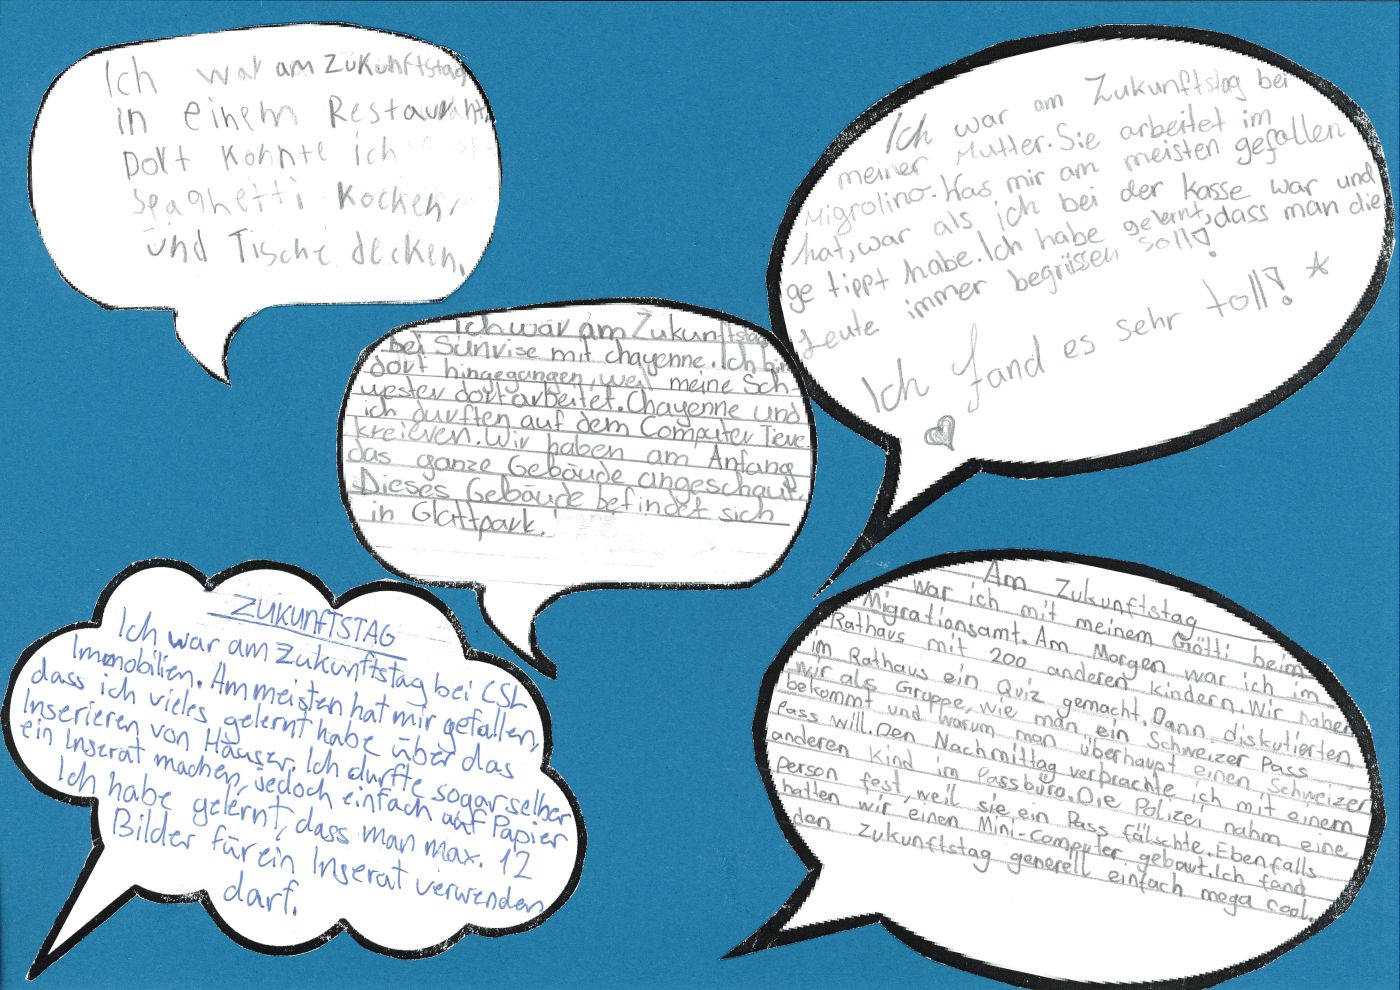 Ich war am Zukunftstag
in einem Restaurant.
Dort konnte ich
Spaghetti kochen,
und Tische decken.
Ich war am Zukunftstag bei
meiner Mutter. Sie arbeitet im
Migrolino. Was mir am meisten gefallen
hat, war als ich bei der Kasse war und
ge tippt habe. Ich habe gelernt, dass man die
Leute immer begrüssen soll!
Ich fand es sehr toll! ☆
Ich war am Zukunftstag
bei Sunrise mit chayenne. Ich bin
dort hingegangen, weil meine Sch-
wester dort arbeitet. Chayenne und
ich durften auf dem Computer Tiere
kreieren. Wir haben am Anfang
das ganze Gebäude angeschaut.
Dieses Gebäude befindet sich
in Glattpark.
ZUKUNFTSTAG
Ich war am Zukunftstag bei CSL
Immobilien. Am meisten hat mir gefallen,
dass ich vieles gelernt habe über das
Inserieren von Häuser. Ich durfte sogar selber
ein Inserat machen, jedoch einfach auf Papier
Ich habe gelernt, dass man max. 12
Bilder für ein Inserat verwenden
darf.
Am Zukunftstag
war ich mit meinem Götti beim
Migrationsamt. Am Morgen war ich im
Rathaus mit 200 anderen kindern. Wir haben
im Rathaus ein Quiz gemacht. Dann diskutierten
wir als Gruppe, wie man ein Schweizer Pass
bekommt und warum man überhaupt einen Schweizer
Pass will. Den Nachmittag verbrachte ich mit einem
anderen Kind im Passbüro. Die Polizei nahm eine
Person fest, weil sie ein Pass fälschte. Ebenfalls
hatten wir einen Mini-Computer gebaut. Ich fand
den Zukunftstag generell einfach mega cool.